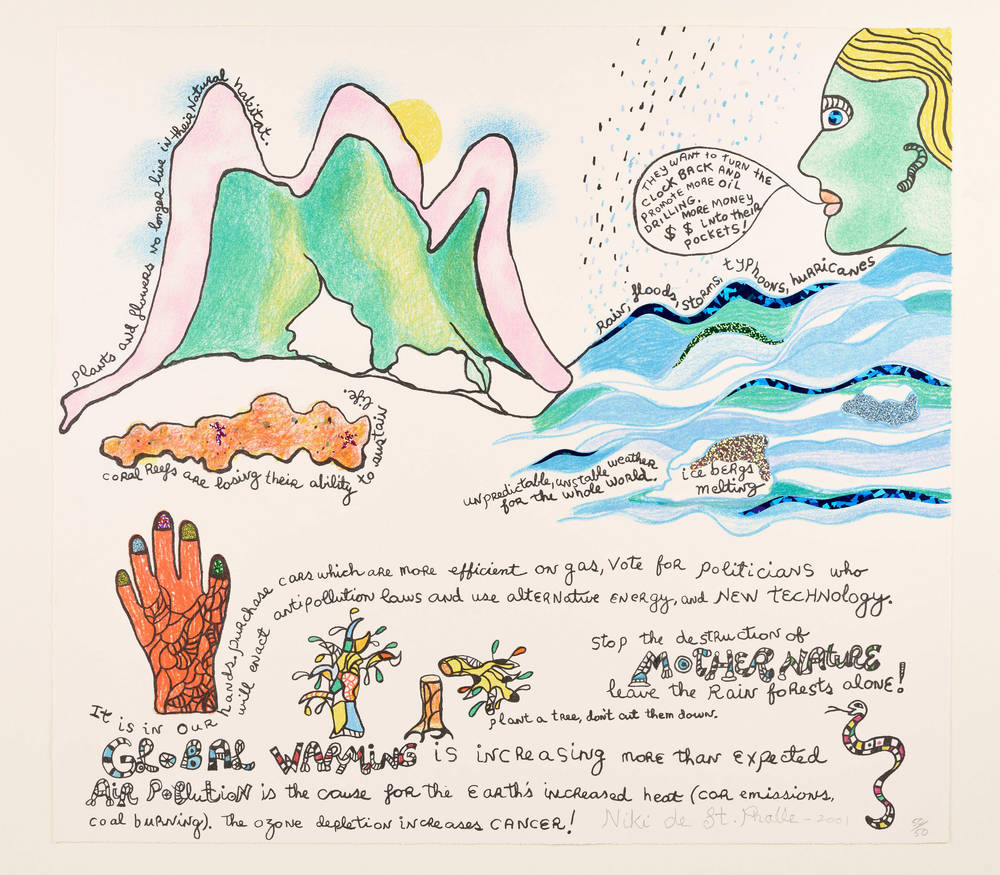 Plants and flowers no longer live in their Natural habitat.
THEY WANT TO TURN THE
CLOCK BACK AND
PROMOTE MORE OIL
DRILLING.
MORE MONEY
$ $ INTO THEIR
POCKETS!
Rain, floods, storms, typhoons, hurricanes
coral Reefs are losing their ability to sustain life.
unpredictable, unstable weather
for the whole world.
ice bergs
melting
It is in our hands. purchase cars which are more efficient on gas, Vote for politicians who
will enact antipollution laws and use alternative energy, and NEW TECHNOLOGY.
Stop the destruction of
MOTHER NATURE
leave the Rain forests alone!
plant a tree, don't cut them down.
GLOBAL WARMING is increasing more than expected
AIR POLLUTION is the cause for the Earth's increased heat (car emissions,
coal burning). The ozone depletion increases CANCER!
Niki de St. Phalle - 2001